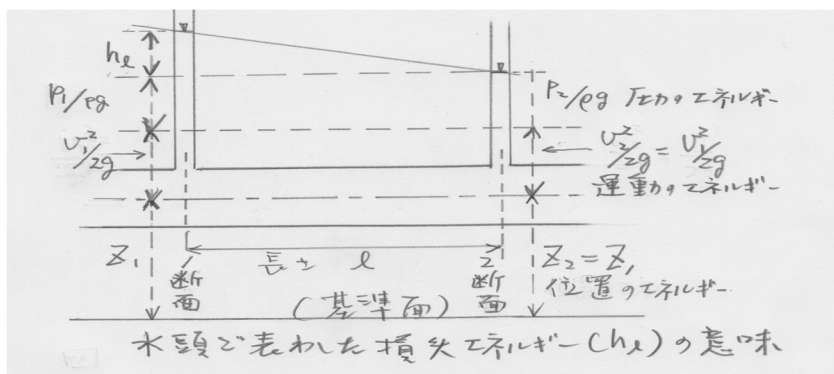 hℓ
P₁/ρg
P₂/ρg 圧力のエネルギー
υ₁²/2g
υ₂²/2g = υ₁²/2g
運動のエネルギー
Z₁
1断面
長さ ℓ
2断面
Z₂ = Z₁
位置のエネルギー
(基準面)
水頭で表わした損失エネルギー(hℓ)の意味